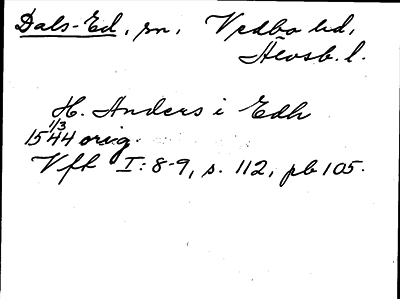 Dals-Ed, sn, Vedbo hd,
Älvsb. l.
H. Anders i Edh
1/3
1544 orig.
Vft I: 8-9, s. 112, pb 105.